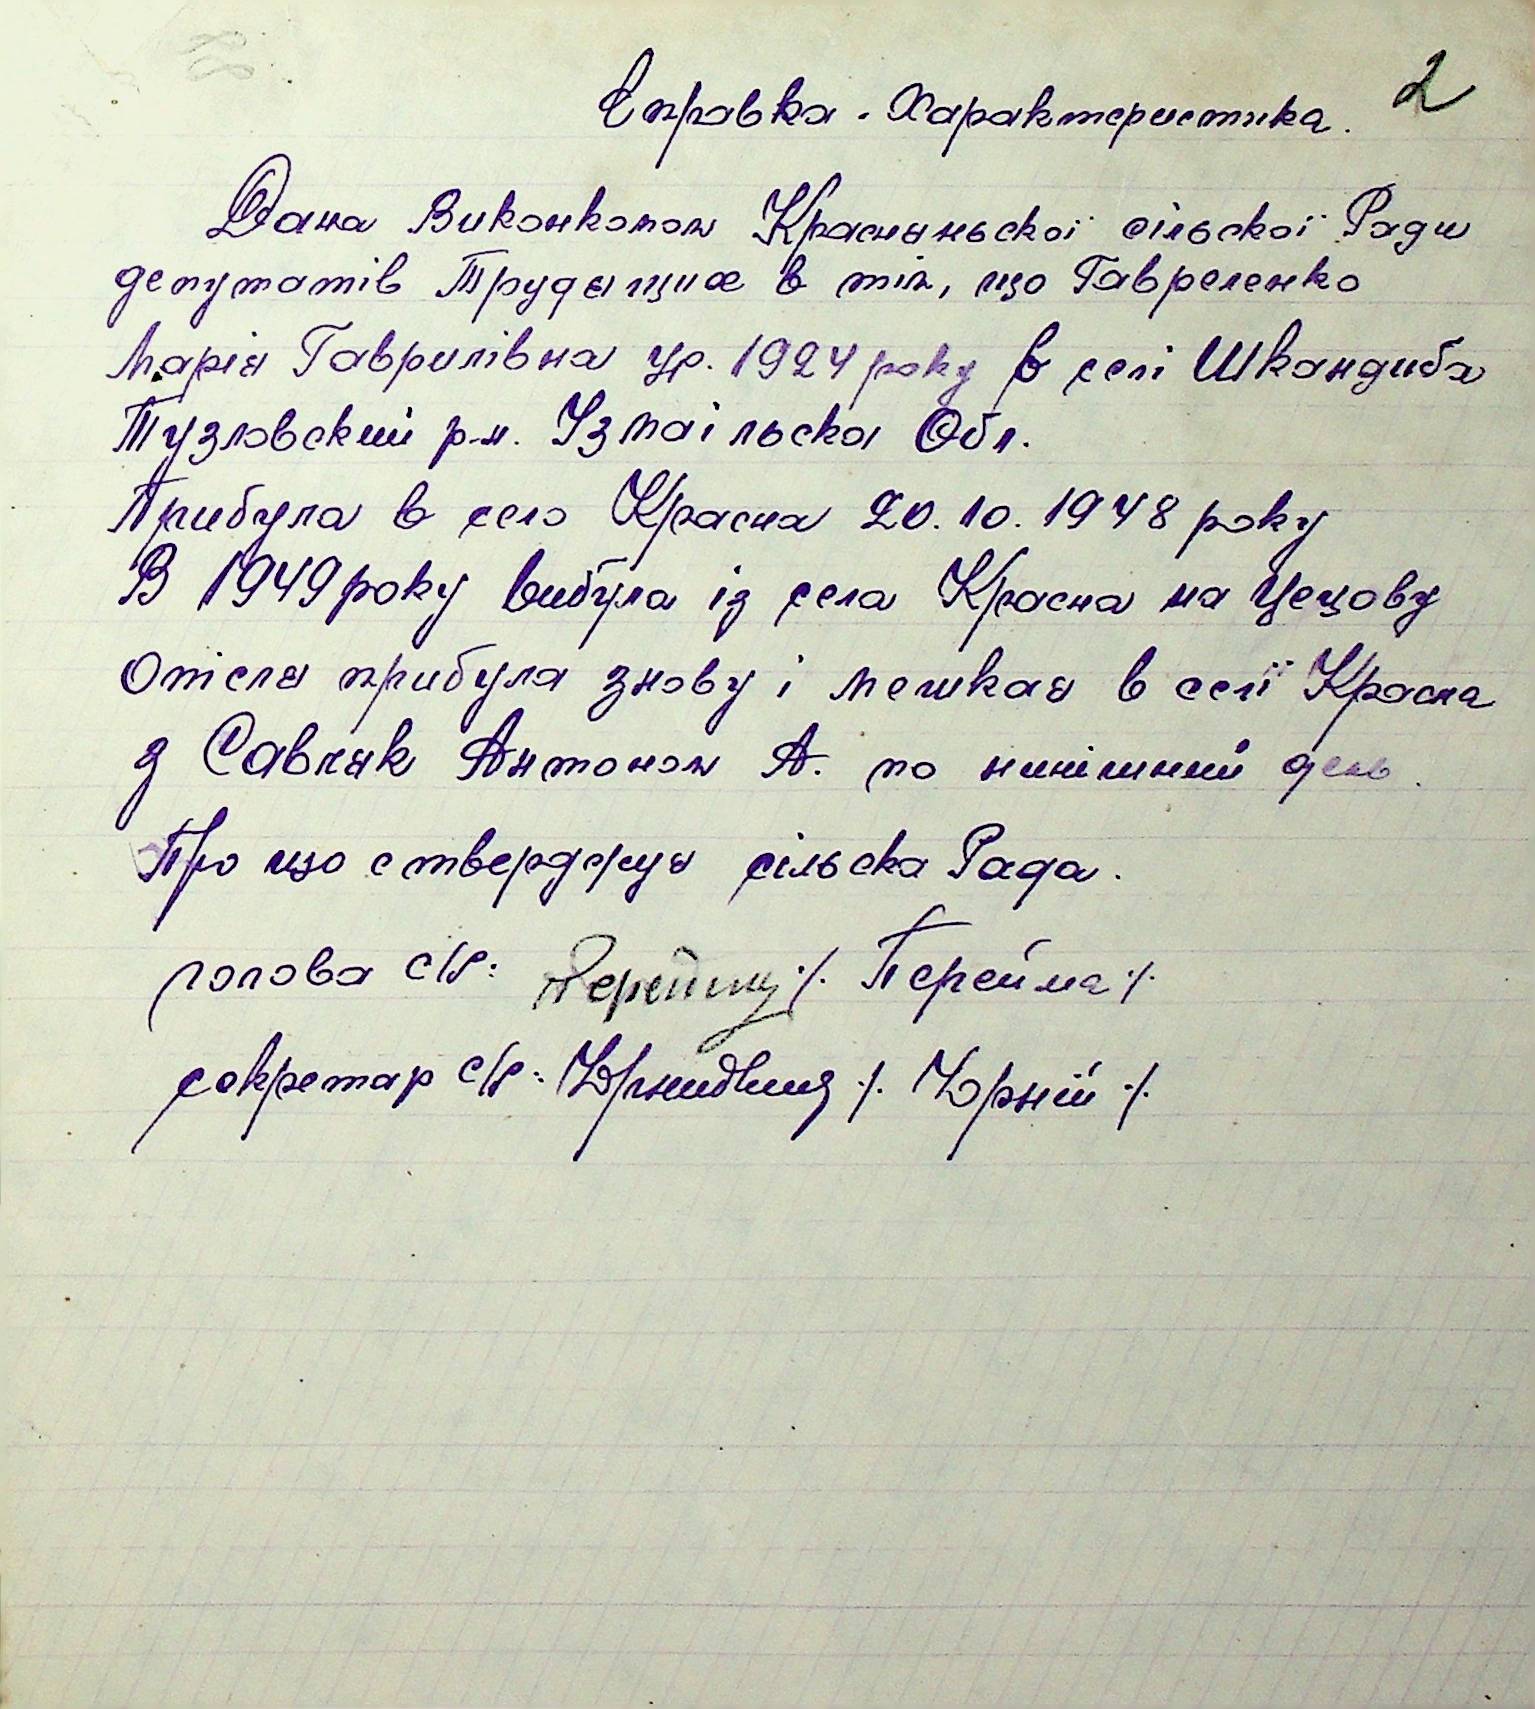 2
Справка. Характеристика.
Дана Виконкомом Красняньскої сільскої Ради
депутатів Трудящих в тім, що Гавреленко
Марія Гаврилівна ур. 1924 року в селі Шкандиба
Тузловский р-н. Ізмаільска Обл.
Прибула в село Красна 20.10.1948 року
В 1949 року вибула із села Красна на Цецову
Опісля прибула знову і мешкає в селї Красна
з Савляк Антоном А. по нинішний день.
Про що стверджує сільска Рада.
голова с/р: /. Перейма /.
секретар с/р: /. Юрній /.